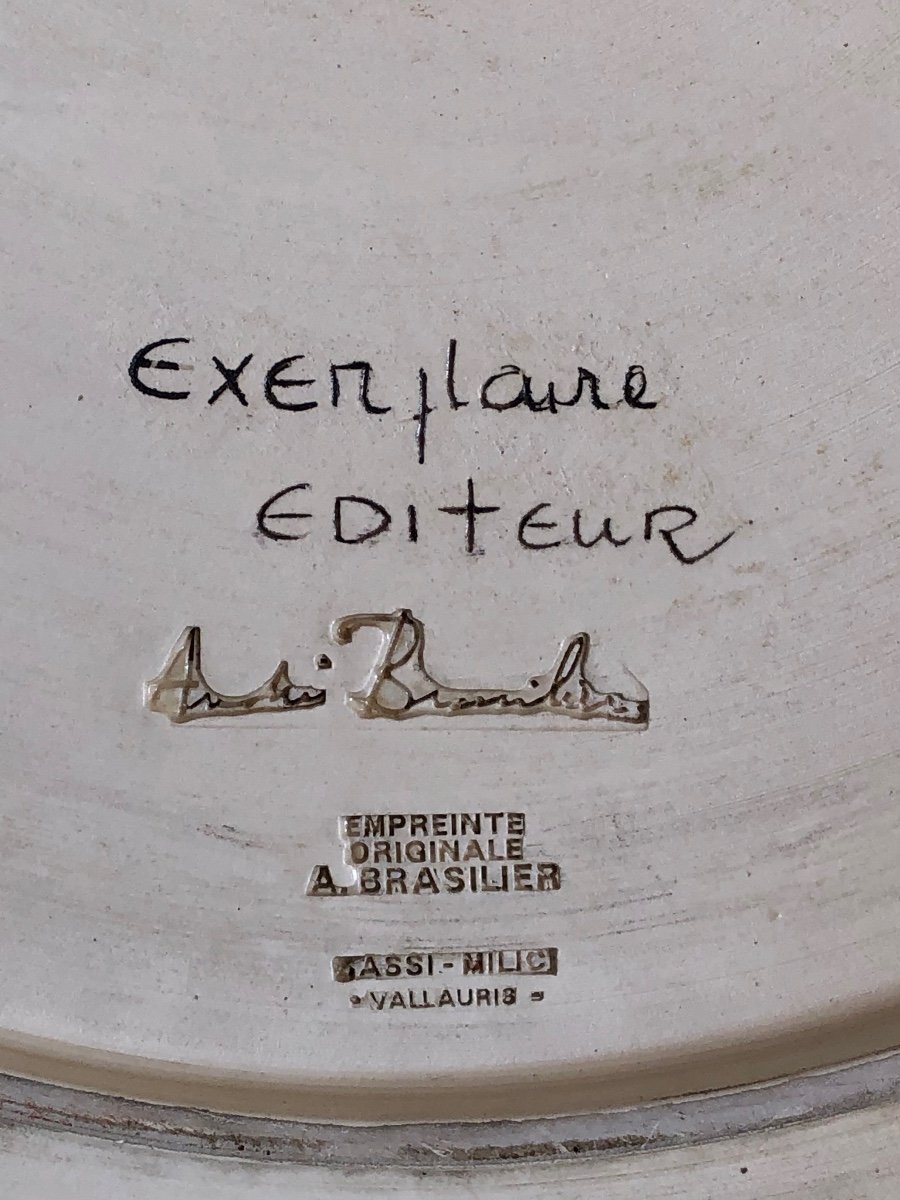 Exemplaire
EDITEUR
André Brasilier
EMPREINTE
ORIGINALE
A. BRASILIER
TASSI-MILIC
VALLAURIS